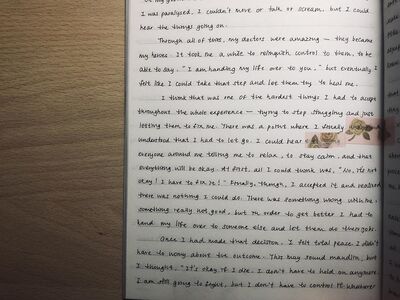 I was paralysed. I couldn't move or talk or scream, but I could
hear the things going on.
Through all of this, my doctors were amazing — they became
my heroes. It took me a while to relinquish control to them, to be
able to say, "I am handing my life over to you," but eventually I
felt like I could take that step and let them try to heal me.
I think that was one of the hardest things I had to accept
throughout the whole experience — trying to stop struggling and just
letting them to fix me. There was a point where I finally
understood that I had to let go. I could hear
everyone around me telling me to relax, to stay calm, and that
everything will be okay. At first, all I could think was, "No, it's not
okay! I have to fix it!" Finally, though, I accepted it and realised
there was nothing I could do. There was something wrong with me,
something really not good, but in order to get better I had to
hand my life over to someone else and let them do their job.
Once I had made that decision, I felt total peace. I didn't
have to worry about the outcome. This may sound mandlin, but
I thought, "It's okay if I die. I don't have to hold on anymore.
I am still going to fight, but I don't have to control it. Whatever